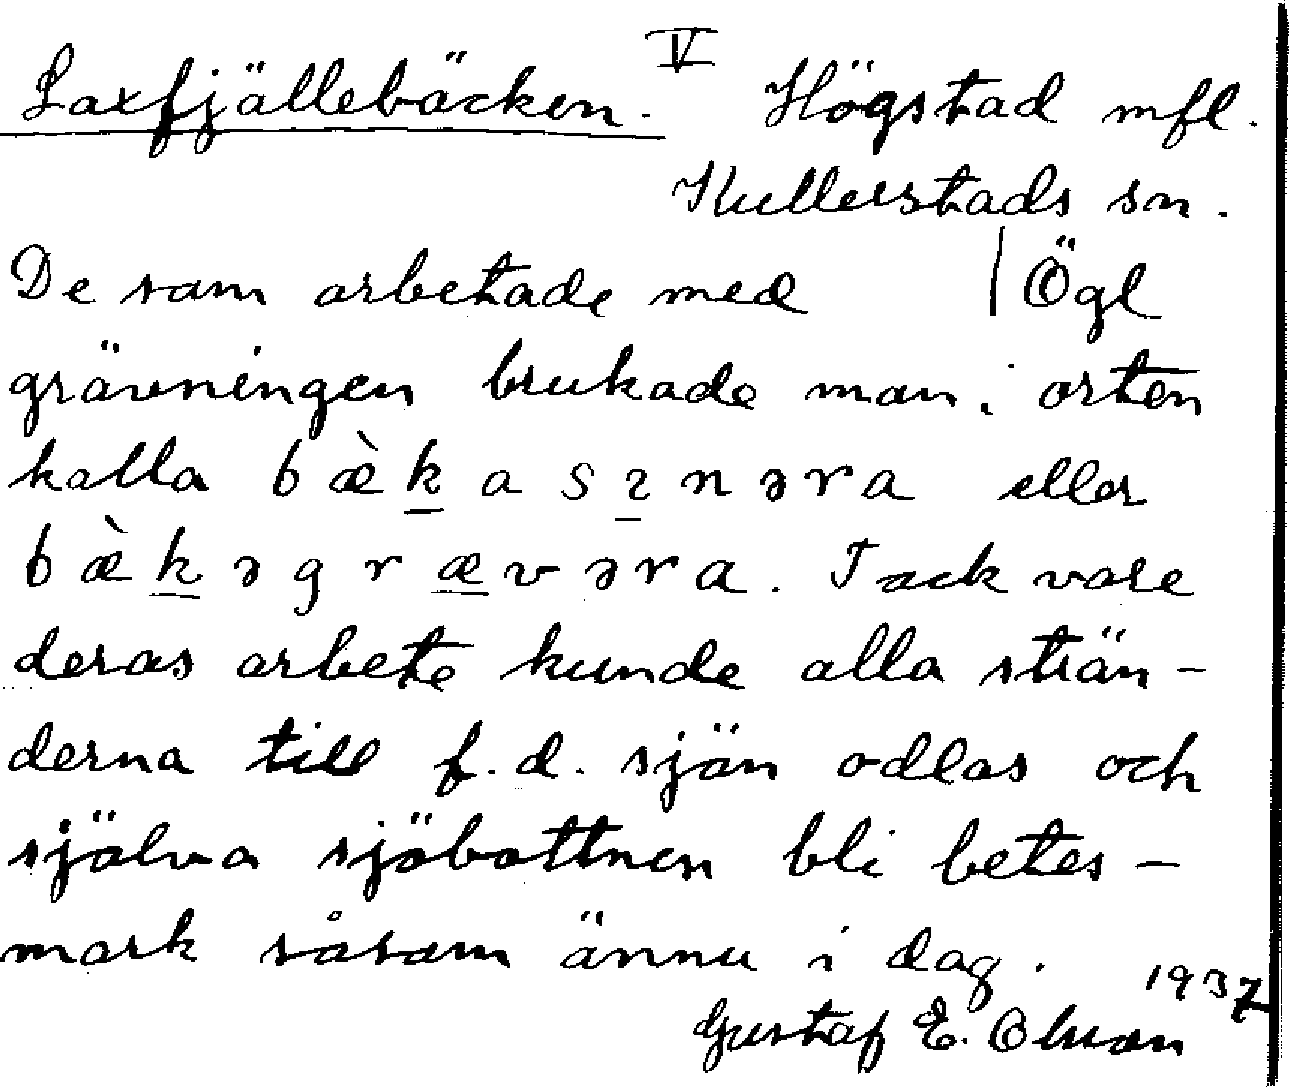 Laxfjällebäcken. V Högstad mfl.
Kullerstads sn.
De som arbetade med | Ögl
grävningen brukade man i orten
kalla bæ̀k̲asɿ̲nəra eller
bæ̀k̲əgræ̲vəra. Tack vare
deras arbete kunde alla strän-
derna till f.d. sjön odlas och
själva sjöbottnen bli betes-
mark såsom ännu i dag.
1937
Gustaf E. Olsson